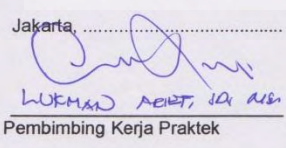 Jakarta, ........................................
LUKMAN
Pembimbing Kerja Praktek